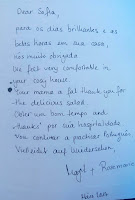 Dear Sofia,
para os dias brilhantes e as
belas horas em sua casa,
nós muito obrigada
We felt very comfortable in
your cosy house.
Your mama a fat thank you for
the delicious salad.
Obter um bom tempo and
thanks for sua hospitalidade
Vou continuar a praticar Português
Vielleicht auf Wiedersehen,
+ Rosemarie